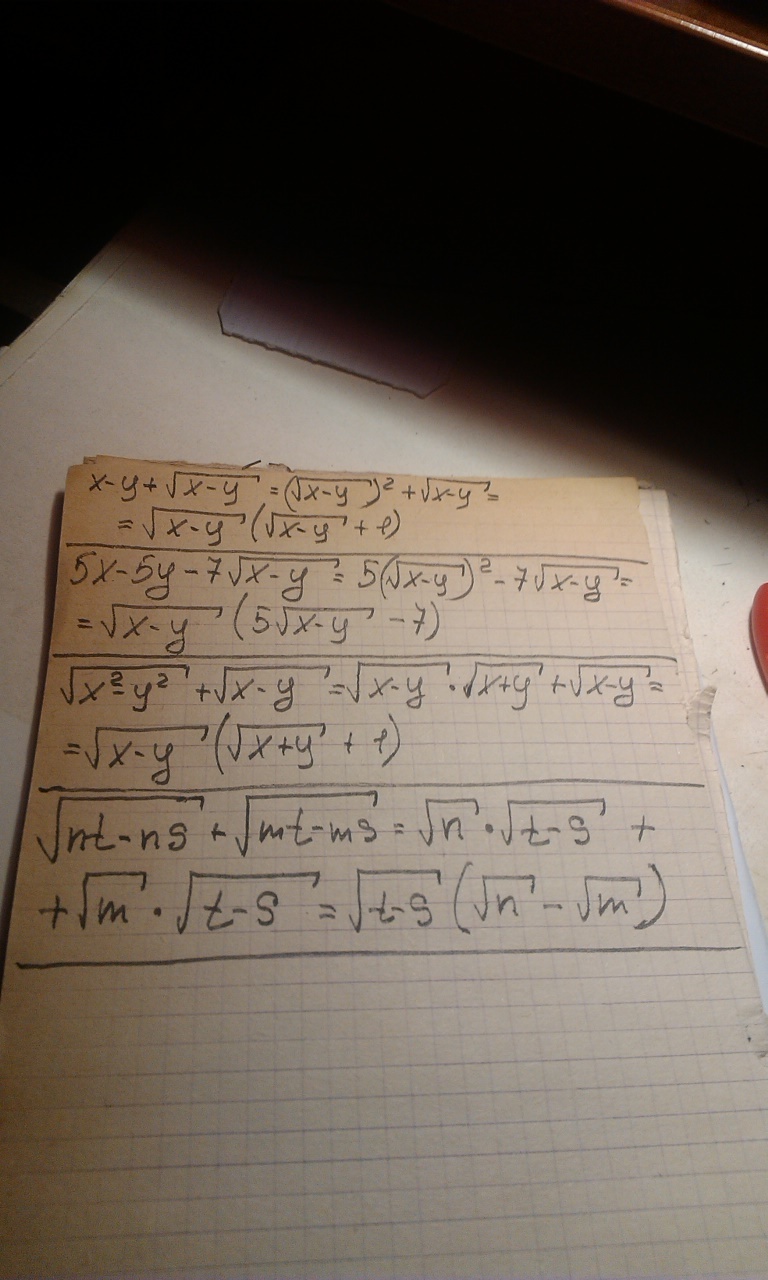 x-y+√(x-y) = (√(x-y))² + √(x-y) =
= √(x-y) (√(x-y) + 1)
5x-5y-7√(x-y) = 5(√(x-y))² - 7√(x-y) =
= √(x-y) (5√(x-y) - 7)
√(x²-y²) + √(x-y) = √(x-y) · √(x+y) + √(x-y) =
= √(x-y) (√(x+y) + 1)
√(nt-ns) + √(mt-ms) = √n · √(t-s) +
+ √m · √(t-s) = √(t-s) (√n - √m)